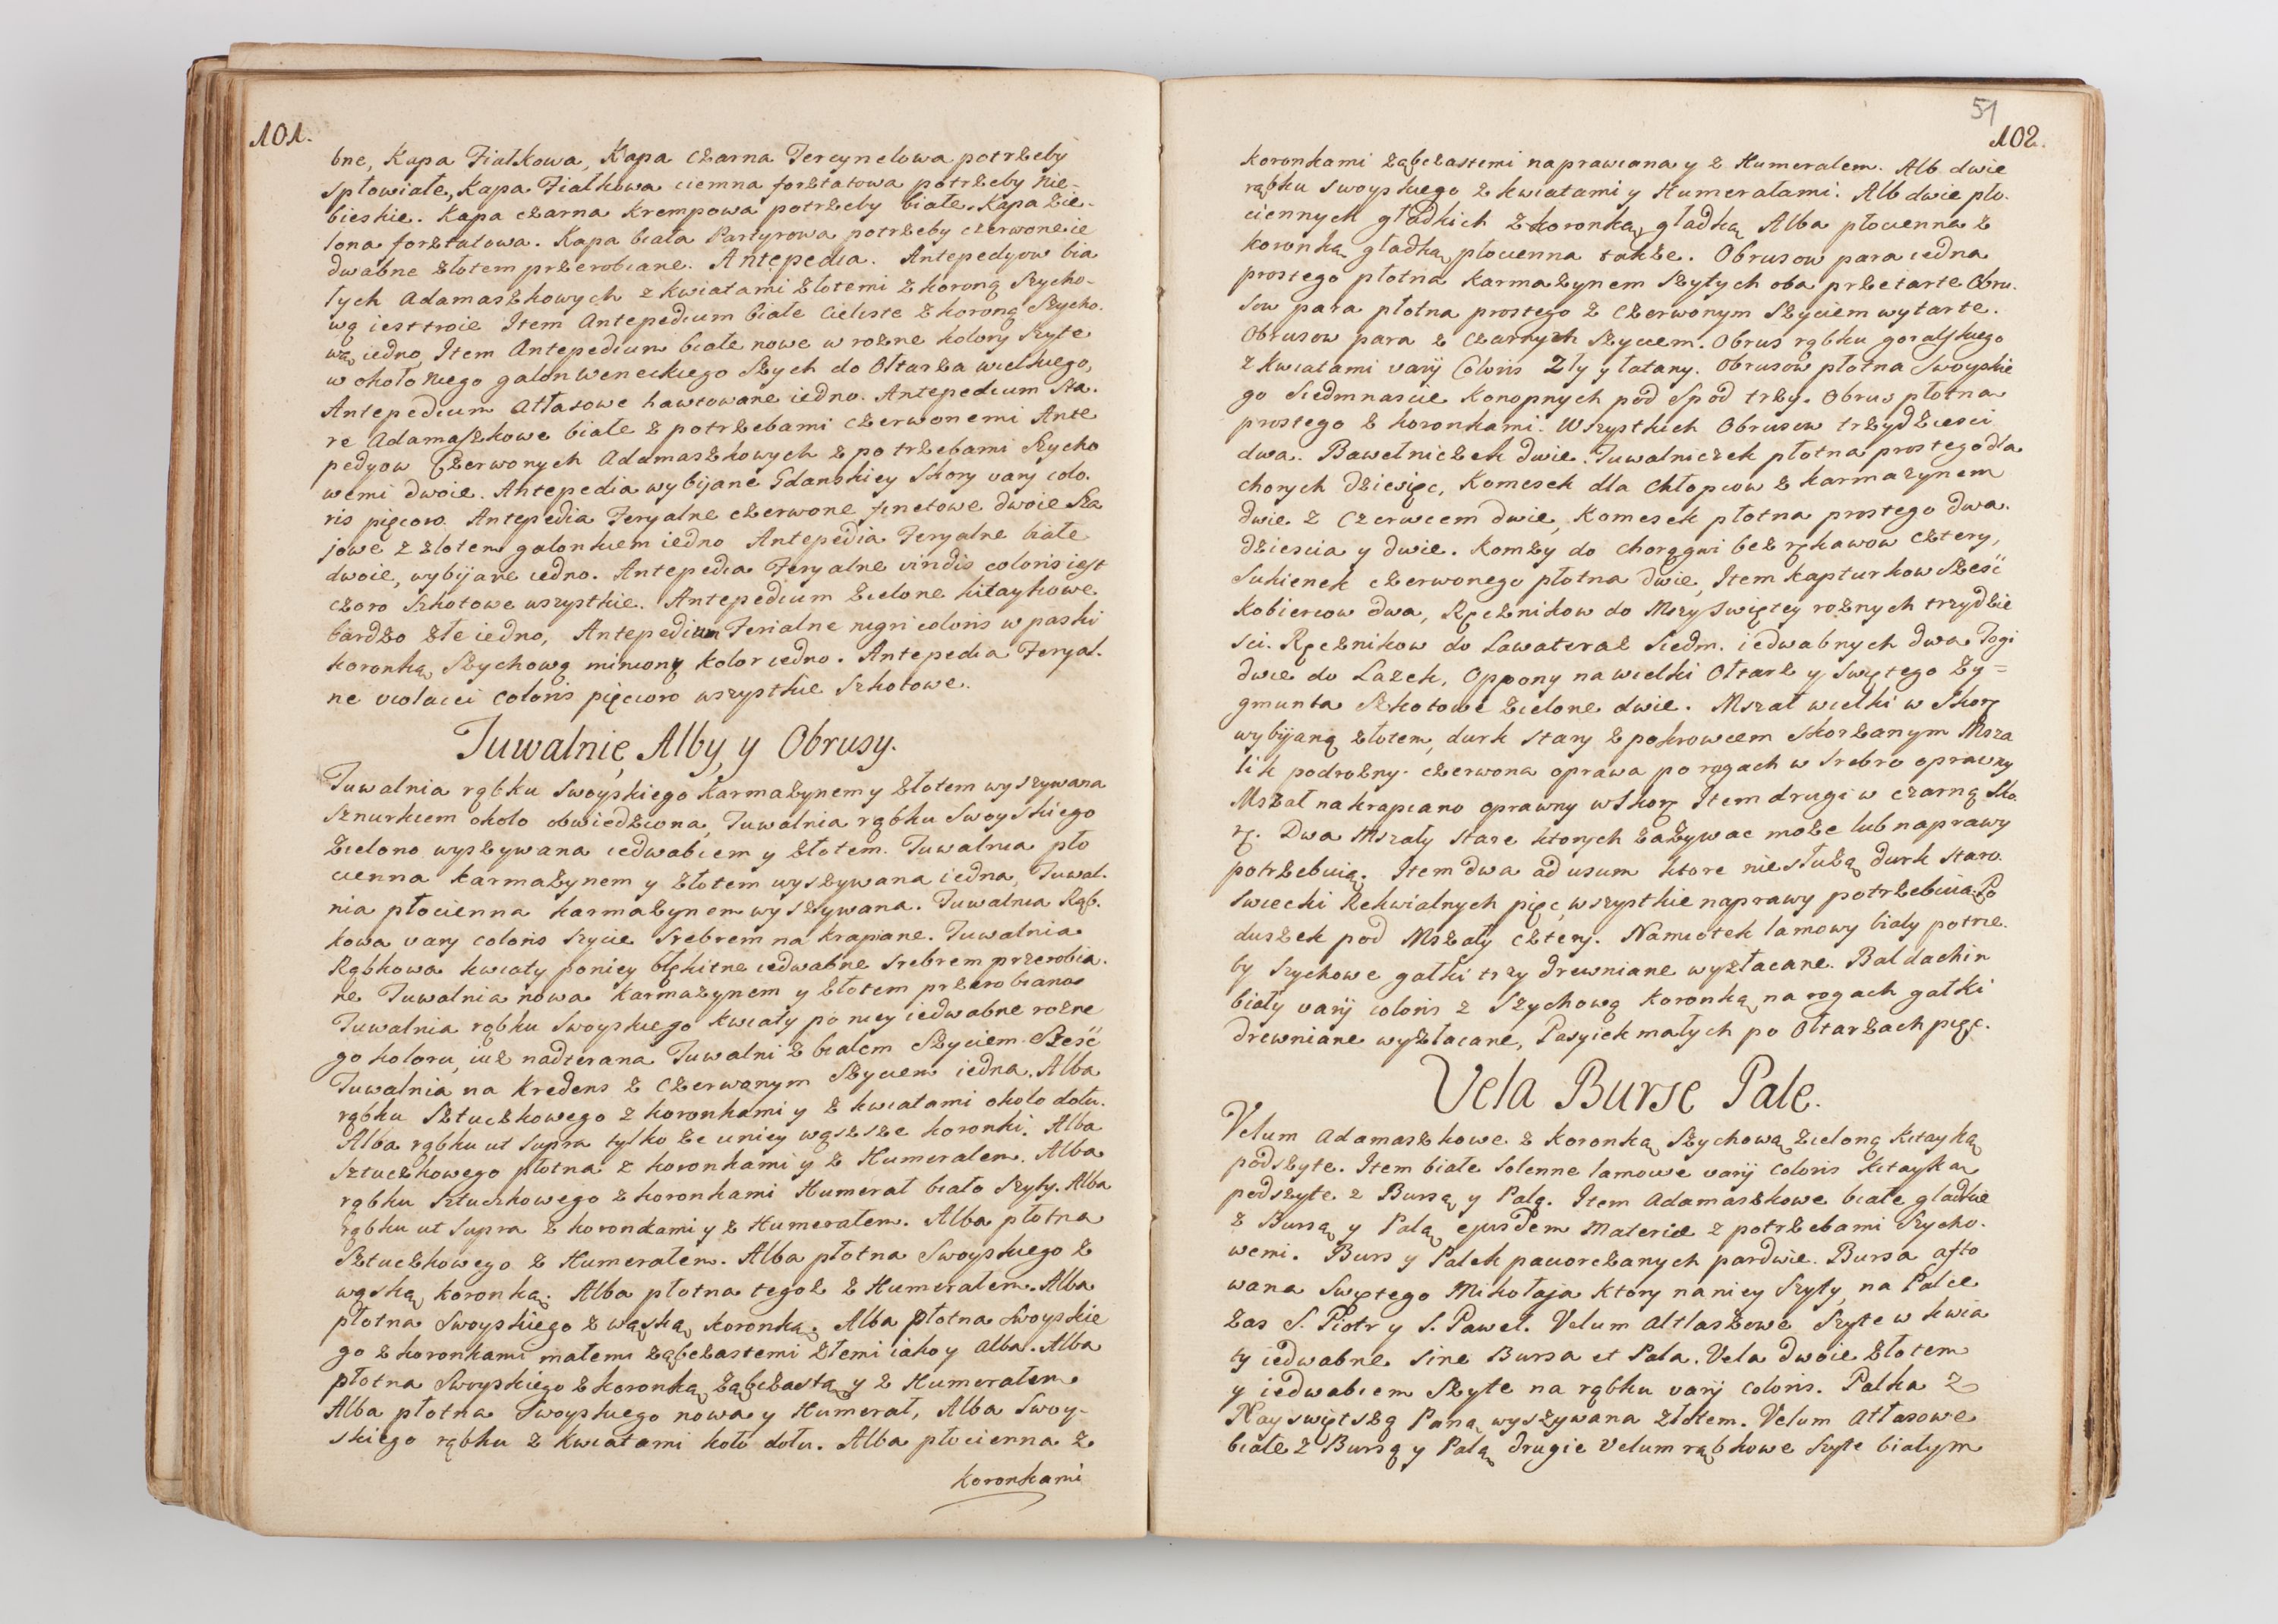 101.
bne, Kapa Fiałkowa, Kapa czarna Tercynelowa potrzeby
spłowiałe, Kapa Fiałkowa ciemna forsztatowa potrzeby nie-
bieskie. Kapa czarna Krempowa potrzeby białe. Kapa zie-
lona forsztatowa. Kapa biała Partyrowa potrzeby czerwone ie
dwabne złotem przerobiane. Antepedia. Antepedyow bia
łych Adamaszkowych z kwiatami złotemi z koroną Szycho-
wą iest troie Item Antepedium białe Cieliste z koroną Szycho.
wą iedno, Item Antepedium białe nowe w rozne kolory Szyte
w około niego galon Weneckiego Szych do Ołtarza wielkiego,
Antepedium Atłasowe hawtowane iedno. Antepedium Sta.
re Adamaszkowe białe z potrzebami czerwonemi Ante
pedyow Czerwonych Adamaszkowych z potrzebami Szycho
wemi dwoie. Antepedia wybijane Gdanskiey Skory varij colo.
ris pięcioro. Antepedia Feryalne czerwone fenetowe dwoie Sza
jowe z złotem galonkiem iedno Antepedia Feryalne białe
dwoie, wybijane iedno. Antepedia Feryalne viridis coloris iest
czoro Szkotowe wszystkie. Antepedium zielone kitaykowe
bardzo złe iedno, Antepedium Ferialne nigri coloris w paski
koronką Szychową mieniony kolor iedno. Antepedia Feryal.
ne violacei coloris pięcioro wszystkie Szkotowe.
Tuwalnie, Alby, y Obrusy.
Tuwalnia rąbku Swoyskiego Karmazynem y złotem wyszywana
Sznurkiem około obwiedziona, Tuwalnia rąbku Swoyskiego
zielono wyszywana iedwabiem y złotem. Tuwalnia pło
cienna karmazynem y złotem wyszywana iedna, Tuwal.
nia płocienna karmazynem wyszywana. Tuwalnia Rąb.
kowa varij coloris szycie Srebrem na krapiane. Tuwalnia
Rąbkowa kwiaty poniey błękitne iedwabne Srebrem przerobia.
ne Tuwalnia nowa karmazynem y złotem przerobiana
Tuwalnia rąbku Swoyskiego kwiaty po niey iedwabne rozne
go koloru, iuż nadterana Tuwalni z białem Szyciem Sześć
Tuwalnia na Kredens z czerwonym Szyciem iedna. Alba
rąbku Sztuczkowego z koronkami y z kwiatami około dołu.
Alba rąbku ut supra tylko że uniey wąszsze koronki. Alba
Sztuczkowego płotna z koronkami y z Humerałem. Alba
rąbku Sztuczkowego z koronkami Humerał biało Szyty. Alba
rąbku ut supra z koronkami y z Humerałem. Alba płotna
Sztuczkowego z Humerałem. Alba płotna Swoyskiego z
wąską koronką. Alba płotna tegoż z Humerałem. Alba
płotna Swoyskiego z wąską koronką. Alba płotna Swoyskie
go z koronkami małemi ząbczastemi złemi iako y Alba. Alba
płotna Swoyskiego z koronką ząbczastą y z Humerałem
Alba płotna Swoyskiego nowa y Humerał, Alba Swoy-
skiego rąbku z kwiatami koło dołu. Alba płocienna z
koronkami
51
102.
koronkami ząbczastemi naprawiana y z Humerałem. Alb dwie
rąbku swoyskiego z kwiatami y Humerałami. Alb dwie pło.
ciennych gładkich z koronką gładką Alba płocienna z
koronką gładką płocienna także. Obrusow para iedna
prostego płotna Karmazynem Szytych oba przetarte Obru.
sow para płotna prostego z czerwonym Szyciem wytarte.
Obrusow para z czarnych Szyciem. Obrus rąbku goralskiego
z kwiatami varij Coloris Zły y łatany. Obrusow płotna Swoyskie
go Siedmnascie Konopnych pod Spod trzy. Obrus płotna
prostego z koronkami. Wszystkich Obrusow trzydziesci
dwa. Bawełniczek dwie. Tuwalniczek płotna prostego dla
chorych dziesięc, Komesek dla Chłopcow z karmazynem
dwie z Czerwcem dwie, Komesek płotna prostego dwa.
dziescia y dwie. Komży do chorągwi bez rękawow cztery,
Sukienek czerwonego płotna dwie, Item kapturkow Sześć
Kobiercow dwa, Ręcznikow do Mszy swiętey roznych trzydzie
sci. Ręcznikow do Lawaterzał Siedm. iedwabnych dwa Togi
dwie do Lasek, Oppony na wielki Ołtarz y Swiętego Zy=
gmunta Szkotowe zielone dwie. Mszał wielki w Skorę
wybijaną złotem, durk stary z pokrowcem skorzanym Msza
lik podrozny. czerwona oprawa po rągach w Srebro oprawny
Mszał nakrapiano oprawny w Skorę Item drugi w czarną Sko.
rę. Dwa Mszały stare ktorych zażywac może lub naprawy
potrzebuią. Item dwa ad usum ktore nie służą durk staro.
swiecki Rekwialnych pięc, wszystkie naprawy potrzebuią. Po
duszek pod Mszały cztery. Namiotek lamowy biały potrze.
by szychowe gałki trzy drewniane wyzłacane. Baldachin
biały varij coloris z Szychową koronką na rogach gałki
drewniane wyzłacane, Pasyiek małych po Ołtarzach pięc.
Vela Burse Pale.
Velum Adamaszkowe z koronką Szychową zieloną Kitayką
podszyte. Item białe Solenne lamowe varij coloris kitayką
podszyte z Bursą y Palą. Item Adamaszkowe białe gładkie
z Bursą y Palą ejusdem Materiæ z potrzebami Szycho.
wemi. Burs y Palek paciorczanych par dwie. Bursa afto
wana Swiętego Mikołaja ktory na niey Szyty, na Palce
zas S. Piotr y S. Paweł. Velum Altlaszowe Szyte w kwia
ty iedwabne sine Bursa et Pala. Vela dwoie złotem
y iedwabiem Szyte na rąbku varij coloris. Palka z
Nayswiętszą Panną wyszywana złotem. Velum Atłasowe
białe z Bursą y Palą drugie Velum rąbkowe Szyte białym